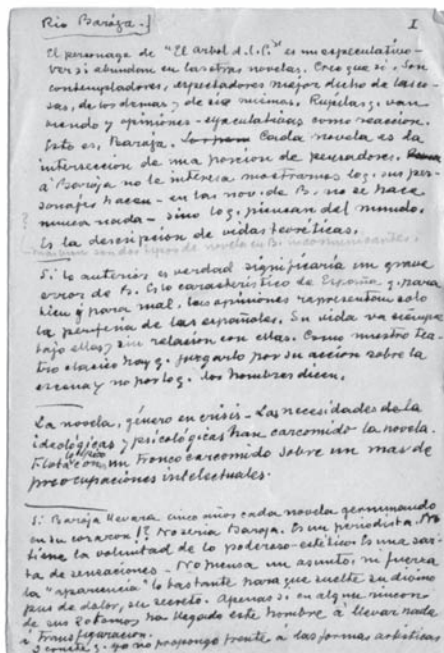 Pío Baroja.] I
El personage de "El arbol d.l.C." es un especulativo-
ver si abundan en las otras novelas. Creo que si. Son
contempladores, espectadores mejor dicho de las co-
sas, de los demas y de sí mismas. Pupilas q. van
viendo y opiniones - especulativas como reacción.
Esto es, Baroja. Cada novela es la
intersección de una porcion de pensadores.
á Baroja no le interesa mostrarnos lo q. sus per-
sonajes hacen - en las nov. de B. no se hace
nunca nada - sino lo q. piensan del mundo.
Es la descripcion de vidas teoréticas.
son dos tipos de novela en B. incomunicantes.
Si lo anterior es verdad significaría un grave
error de B. Es lo característico de España q. para
bien y para mal, las opiniones representan solo
la periferia de los españoles. Su vida va siempre
bajo ellas y sin relacion con ellas. Como nuestro tea-
tro clasico hay q. juzgarlo por su acción sobre la
escena y no por lo q. los hombres dicen.
La novela, género en crisis - Las necesidades de la
ideológicas y psicológicas han carcomido la novela.
Flota como un tronco carcomido sobre un mar de
preocupaciones intelectuales.
Si Baroja llevara cinco años cada novela germinando
en su corazon!? No sería Baroja. Es un periodista. No
tiene la voluntad de lo poderoso-estético. Es una sar-
ta de sensaciones - No piensa un asunto, ni fuerza
la "apariencia" lo bastante para que suelte su divino
pus de dolor, su secreto. Apenas si en algun rincon
de sus ha llegado este hombre á llevar nada
á Transfiguracion.
q. yo no propongo frente á las formas artisticas